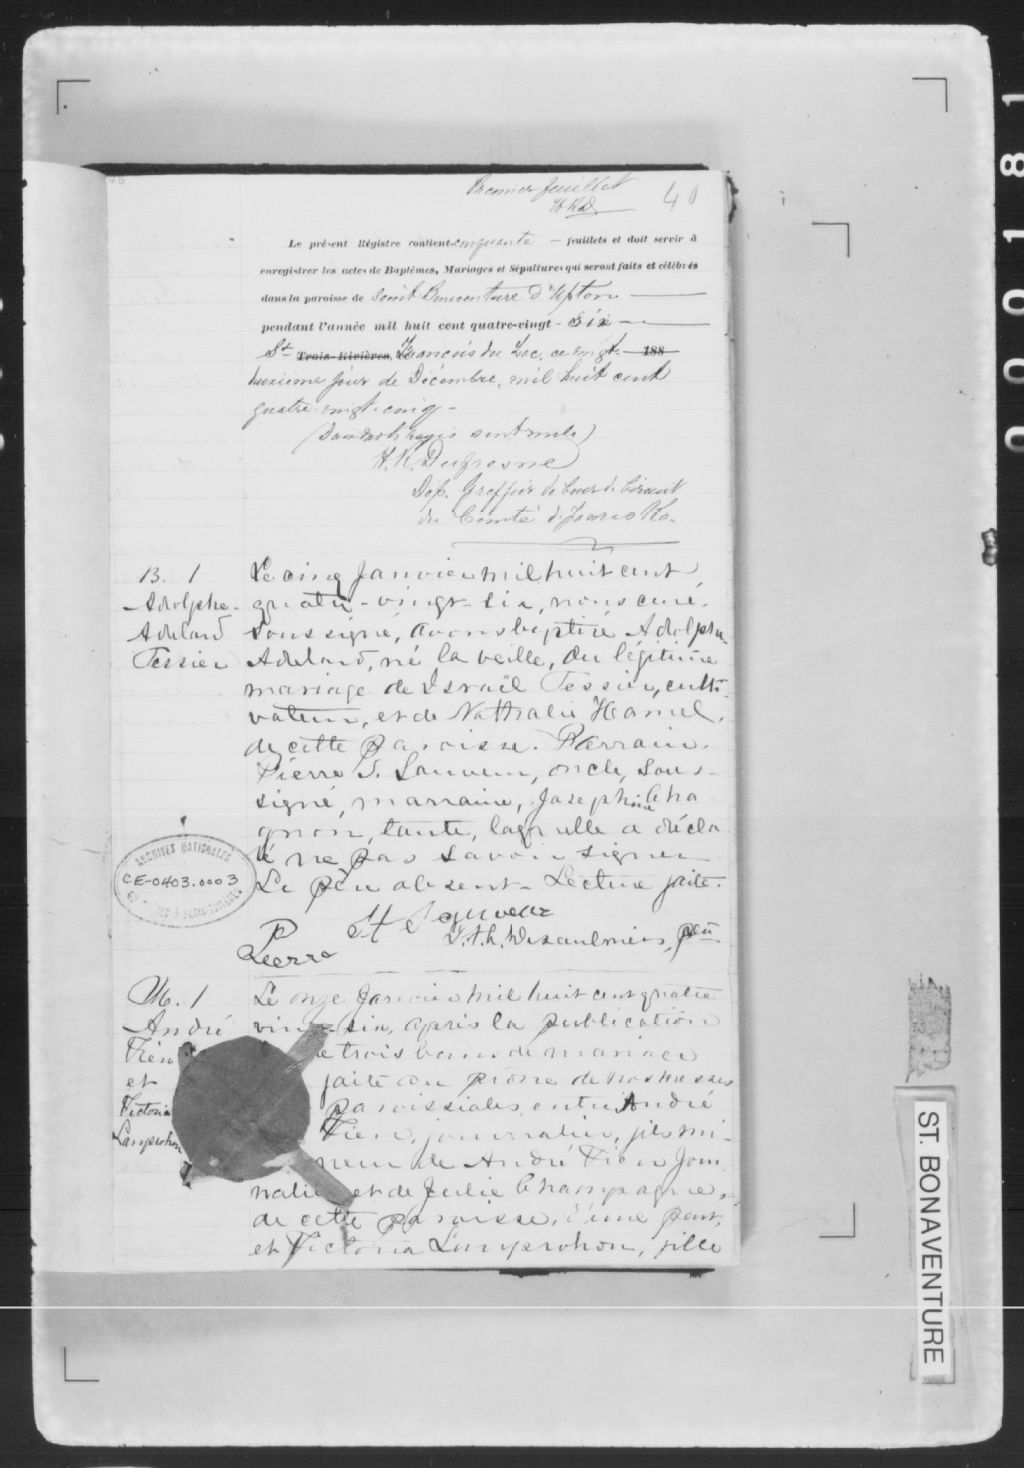 Premier feuillet
H K D
40
Le présent Régistre contient cinquante — feuillets et doit servir à
enregistrer les actes de Baptêmes, Mariages et Sépultures qui seront faits et célébrés
dans la paroisse de Saint Bonaventure d'Upton
pendant l'année mil huit cent quatre-vingt - six
St Trois-Rivières, François du Lac, ce vingt- 188
huitième jour de Décembre, mil huit cent
quatre-vingt-cinq -
H. K. Dufresne
Dép. Greffier de Cour de Circuit
du Comté d'Yamaska
B. 1
Adolphe-
Adelard
Tessier
Le cinq Janvier mil huit cent
quatre-vingt-six, nous curé
soussigné, avons baptisé Adolphe
Adelard, né la veille, du légitime
mariage de Israël Tessier, culti-
vateur, et de Nathalie Hamel,
de cette paroisse. Parrain,
Pierre S. Lauveur, oncle, sous-
signé, marraine, Josephine Cha
gnon, tante, laquelle a décla
ré ne pas savoir signer
Le père absent - Lecture faite.
Pierre St
J. A. L. Desaulniers, ptre
ARCHIVES NATIONALES
CE-0403.0003
M. 1
André
Fien
et
Victoria
Lamprohon
Le onze Janvier mil huit cent quatre
vingt-six, après la publication
de trois bans de mariage
faite au prône de nos messes
paroissiales, entre André
Fien, journalier, fils mi-
neur de André Fien jour
nalier et de Julie Champagne,
de cette paroisse, d'une part,
et Victoria Lamprohon, fille
000181
ST. BONAVENTURE